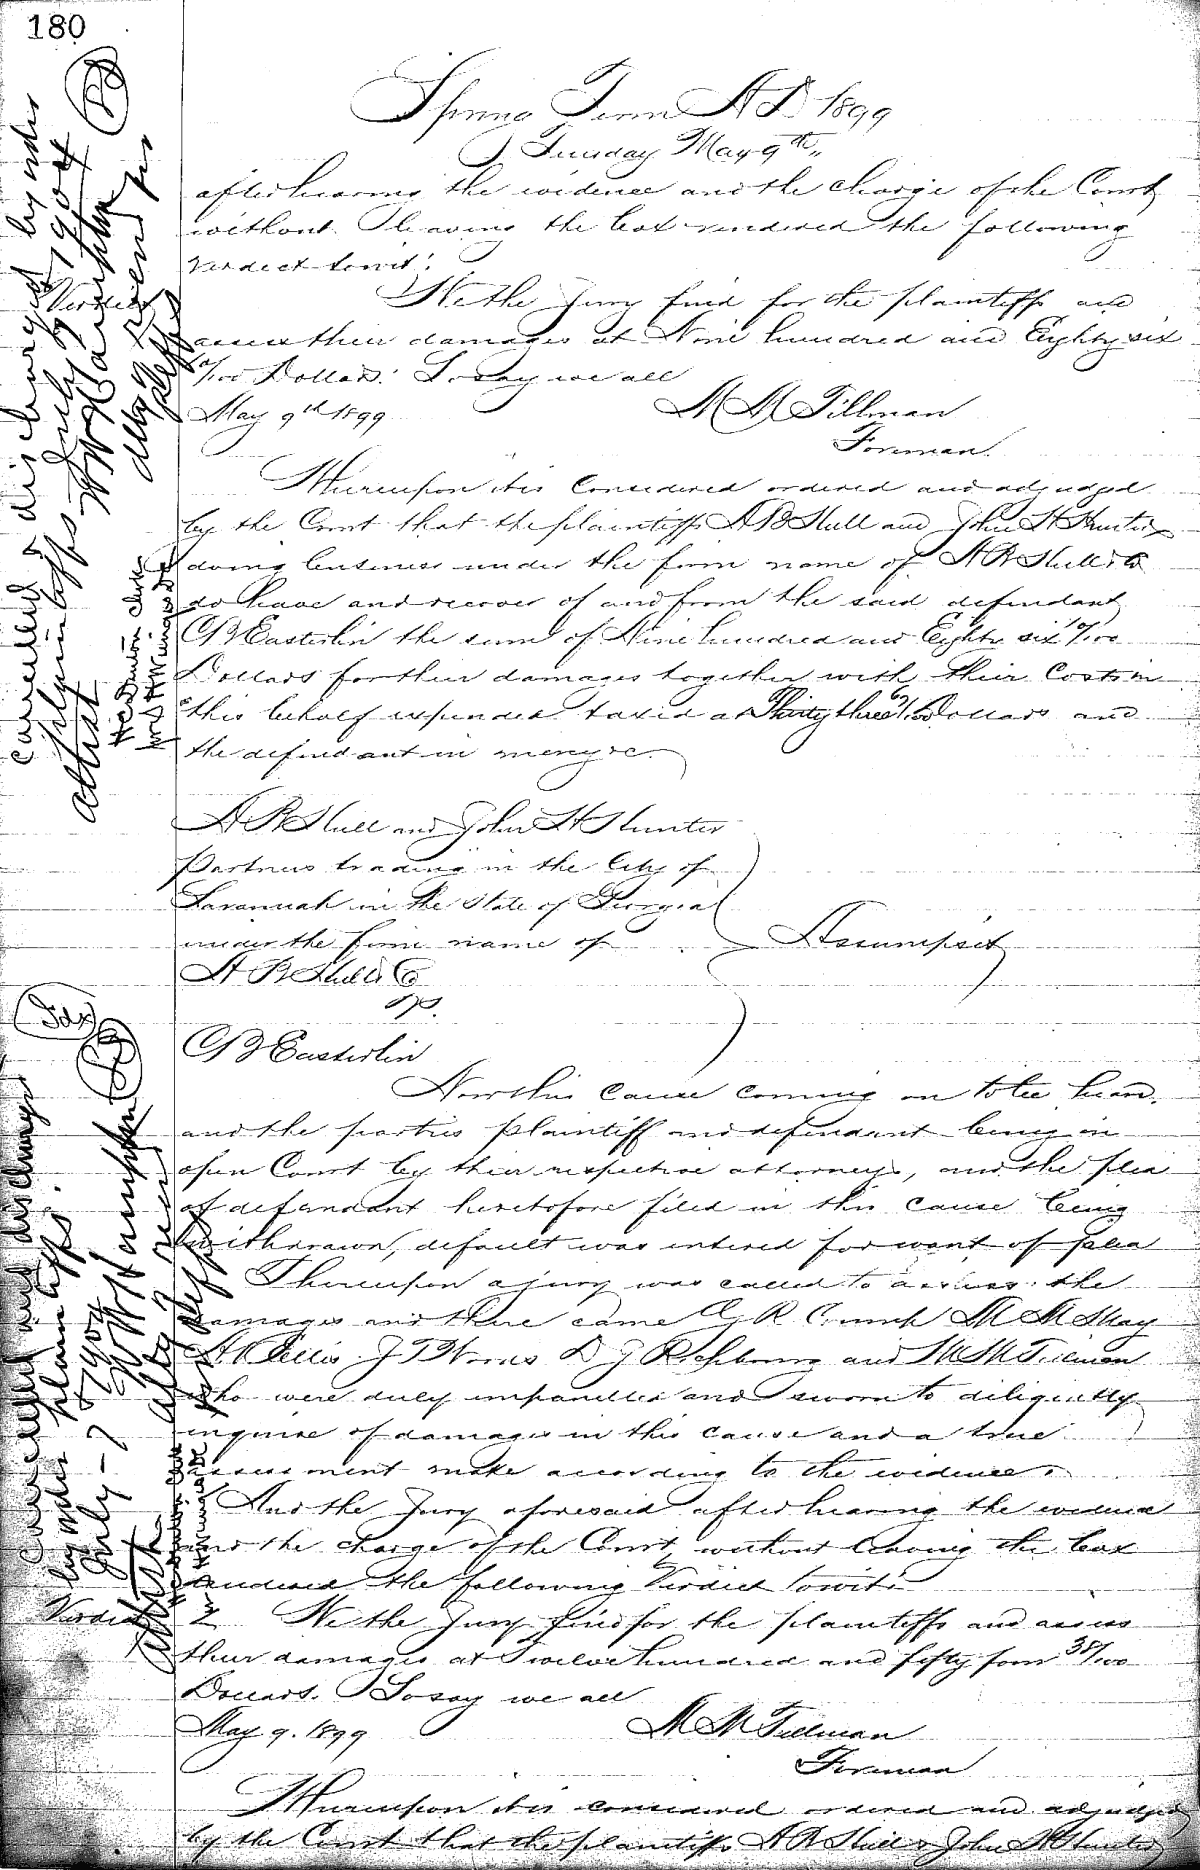 180
Spring Term A D 1899
Tuesday May 9th,
after hearing the evidence and the charge of the Court
without leaving the box rendered the following
verdict towit:
Verdict
We the Jury find for the plaintiffs and
assess their damages at Nine hundred and Eighty six
/100 Dollars. So say we all
May 9th 1899 M M Tillman
Foreman.
Whereupon it is considered ordered and adjudged
by the Court that the plaintiffs A B Hull and John H Hunter
doing business under the firm name of A B Hull & Co
do have and recover of and from the said defendant
C B Easterlin the sum of Nine hundred and Eighty six /100
Dollars for their damages together with their Costs in
this behalf expended taxed at Thirty three /100 Dollars and
the defendant in mercy &c.
A B Hull and John H Hunter
Partners trading in the City of
Savannah in the State of Georgia
under the firm name of
A B Hull & Co
vs.
C B Easterlin
Assumpsit
Now this cause coming on to be heard.
and the parties plaintiff and defendant being in
open Court by their respective attorneys, and the plea
of defendant heretofore filed in this cause being
withdrawn, default was entered for want of plea
Thereupon a jury was called to assess the
damages and there came C. R. M M May
J T D J Richbourg and M M Tillman
who were duly impanelled and sworn to diligently
inquire of damages in this cause and a true
assessment make according to the evidence.
And the Jury aforesaid after hearing the evidence
and the charge of the Court, without leaving the box
rendered the following Verdict towit:
Verdict
We the Jury find for the plaintiffs and assess
their damages at Twelve hundred and fifty four 38/100
Dollars. So say we all
May 9. 1899 M M Tillman
Foreman
Whereupon it is considered ordered and adjudged
by the Court that the plaintiffs A B Hull & John H Hunter
Cancelled & discharged by order
plaintiffs July 7 1904
attest W W Hampton
atty of record for
plffs
Cancelled and discharge
by order plaintiffs.
July - 7 1904
attest W W Hampton
atty of record
for plffs